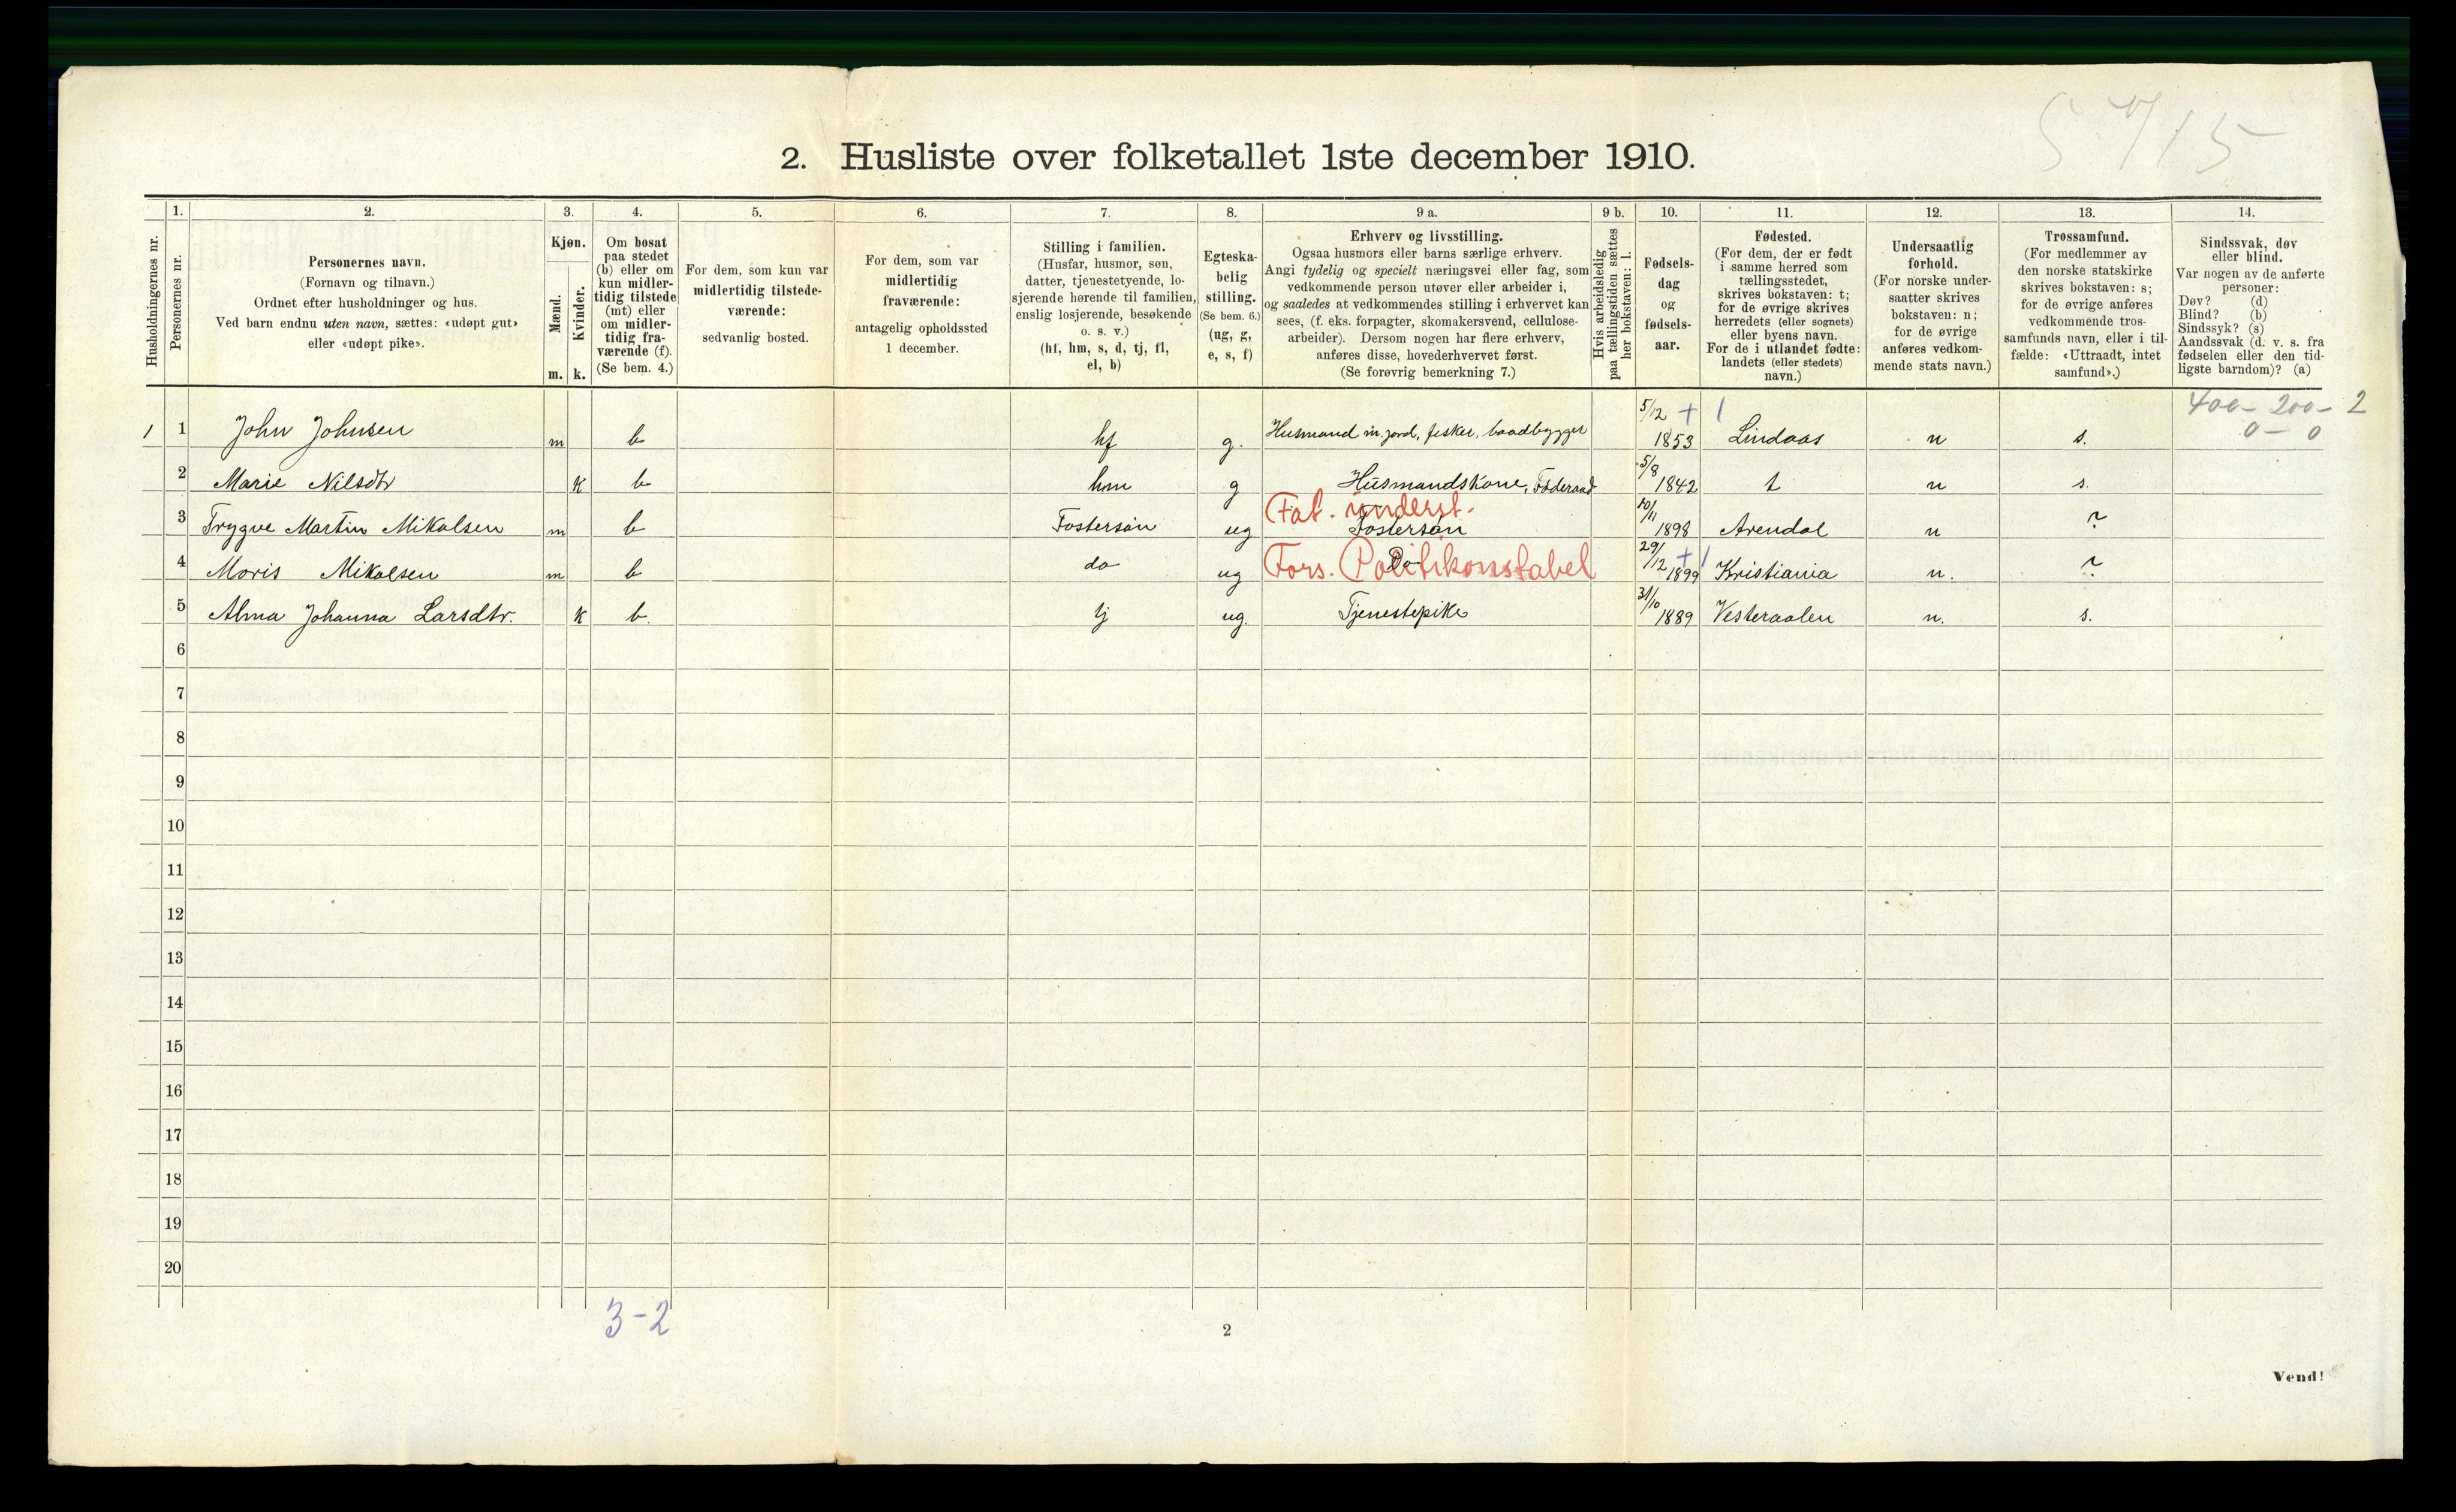 2. Husliste over folketallet 1ste december 1910.
Husholdningernes nr.
1.
Personernes nr.
2.
Personernes navn.
(Fornavn og tilnavn.)
Ordnet efter husholdninger og hus.
Ved barn endnu uten navn, sættes: «udøpt gut»
eller «udøpt pike».
3.
Kjøn.
Mænd.
Kvinder.
m. k.
4.
Om bosat
paa stedet
(b) eller om
kun midler-
tidig tilstede
(mt) eller
om midler-
tidig fra-
værende (f).
(Se bem. 4.)
5.
For dem, som kun var
midlertidig tilstede-
værende:
sedvanlig bosted.
6.
For dem, som var
midlertidig
fraværende:
antagelig opholdssted
1 december.
7.
Stilling i familien.
(Husfar, husmor, søn,
datter, tjenestetyende, lo-
sjerende hørende til familien,
enslig losjerende, besøkende
o. s. v.)
(hf, hm, s, d, tj, fl,
el, b)
8.
Egteska-
belig
stilling.
(Se bem. 6.)
(ug, g,
e, s, f)
9 a.
Erhverv og livsstilling.
Ogsaa husmors eller barns særlige erhverv.
Angi tydelig og specielt næringsvei eller fag, som
vedkommende person utøver eller arbeider i,
og saaledes at vedkommendes stilling i erhvervet kan
sees, (f. eks. forpagter, skomakersvend, cellulose-
arbeider). Dersom nogen har flere erhverv,
anføres disse, hovederhvervet først.
(Se forøvrig bemerkning 7.)
9 b.
Hvis arbeidsledig
paa tællingstiden sættes
her bokstaven: l.
10.
Fødsels-
dag
og
fødsels-
aar.
11.
Fødested.
(For dem, der er født
i samme herred som
tællingsstedet,
skrives bokstaven: t;
for de øvrige skrives
herredets (eller sognets)
eller byens navn.
For de i utlandet fødte:
landets (eller stedets)
navn.)
12.
Undersaatlig
forhold.
(For norske under-
saatter skrives
bokstaven: n;
for de øvrige
anføres vedkom-
mende stats navn.)
13.
Trossamfund.
(For medlemmer av
den norske statskirke
skrives bokstaven: s;
for de øvrige anføres
vedkommende tros-
samfunds navn, eller i til-
fælde: «Uttraadt, intet
samfund».)
14.
Sindssvak, døv
eller blind.
Var nogen av de anførte
personer:
Døv? (d)
Blind? (b)
Sindssyk? (s)
Aandssvak (d. v. s. fra
fødselen eller den tid-
ligste barndom)? (a)
400 - 200 - 2
0 - 0
1 1 John Johnsen m b hf g. Husmand m. jord, fisker, baadbygger 5/12 1853 + 1 Lindaas n s.
2 Marie Nilsdtr k b hm g Husmandskone, Føderaad 5/8 1842 t n s.
Fat. underst.
3 Trygve Martin Mikalsen m b Fostersøn ug Fostersøn 10/11 1898 Arendal n ?
4 Moris Mikalsen m b do ug Do Fors. Politikonstabel 29/12 1899 + 1 Kristiania n. ?
5 Alma Johanna Larsdtr. k b. tj ug. Tjenestepike 31/10 1889 Vesteraalen n. s.
6
7
8
9
10
11
12
13
14
15
16
17
18
19
20
3-2
2
Vend!